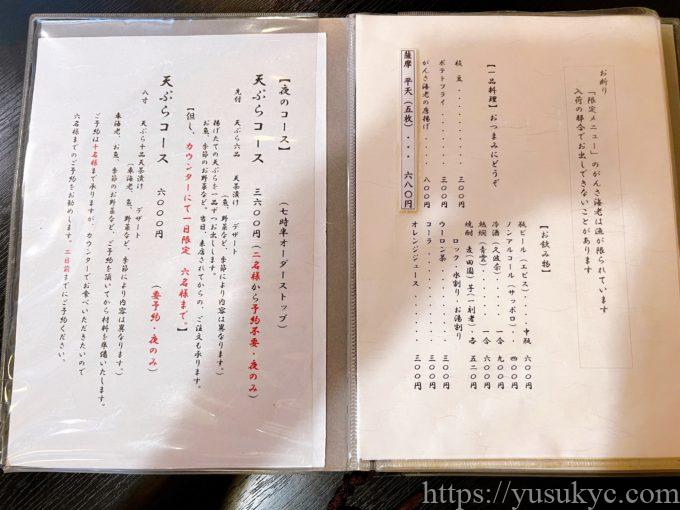 お断り
「限定メニュー」のがんさ海老は漁が限られています
入荷の都合でお出しできないことがあります
【一品料理】おつまみにどうぞ
枝豆・・・・・・・・三〇〇円
ポテトフライ・・・・・三〇〇円
がんさ海老の唐揚げ・・八〇〇円
薩摩 平天（五枚）・・・六八〇円
【お飲み物】
瓶ビール（エビス）・・・中瓶 六〇〇円
ノンアルコール（サッポロ）・・四〇〇円
冷酒（久波奈）・・・・一合 九〇〇円
熱燗（青雲）・・・・・一合 六〇〇円
焼酎 麦（田園）芋（一刻者）各 五二〇円
ロック・水割り・お湯割り
ウーロン茶・・・・・・三〇〇円
コーラ・・・・・・・三〇〇円
オレンジジュース・・・・三〇〇円
【夜のコース】（七時半オーダーストップ）
天ぷらコース 三六〇〇円（二名様から予約不要・夜のみ）
先付 天ぷら六品 天茶漬け デザート
揚げたての天ぷらを一品ずつお出しします。
お魚、季節のお野菜など。当日、来店されてからの、ご注文も承ります。
【但し、カウンターにて一日限定 六名様まで。】
天ぷらコース 六〇〇〇円（要予約・夜のみ）
八寸 天ぷら十品 天茶漬け デザート
（車海老、魚、野菜など、季節により内容は異なります。）
車海老、お魚、季節のお野菜など、ご予約を頂いてから材料を準備いたします。
ご予約は十名様まで承りますが、カウンターでお食べいただきたいので
六名様までのご予約をお勧めします。三日前までにご予約ください。
https://yusukyc.com